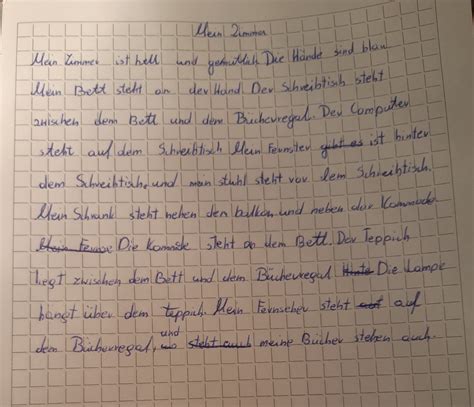 Mein Zimmer
Mein Zimmer ist hell und gemütlich Die Hände sind blau
Mein Bett steht an der Hand Der Schreibtisch steht
zwischen dem Bett und dem Bücherregal. Der Computer
steht auf dem Schreibtisch Mein Fernster gibt es ist hinter
dem Schreibtisch, und mein stuhl steht vor dem Schreibtisch.
Mein Schrank steht neben den balkon und neben der Kommode.
Mein Die Kommode steht an dem Bett. Der Teppich
liegt zwischen dem Bett und dem Bücherregal Die Lampe
hängt über dem teppich. Mein Fernseher steht auf auf
dem Bücherregal, und steht auch meine Bücher stehen auch.